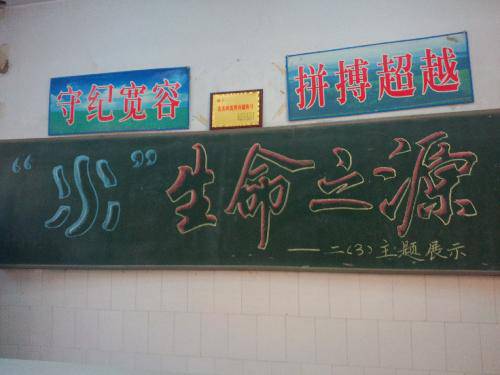 守纪宽容
拼搏超越
“水”生命之源
——二(3)主题展示